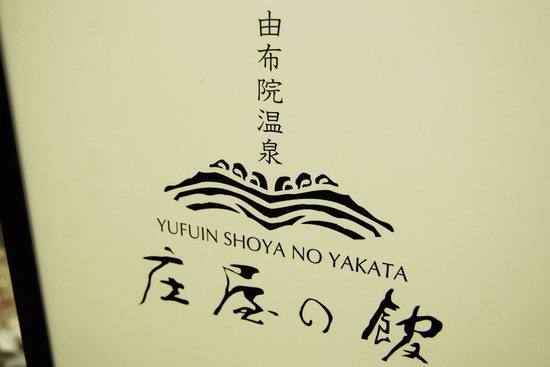 由布院温泉
YUFUIN SHOYA NO YAKATA
庄屋の館